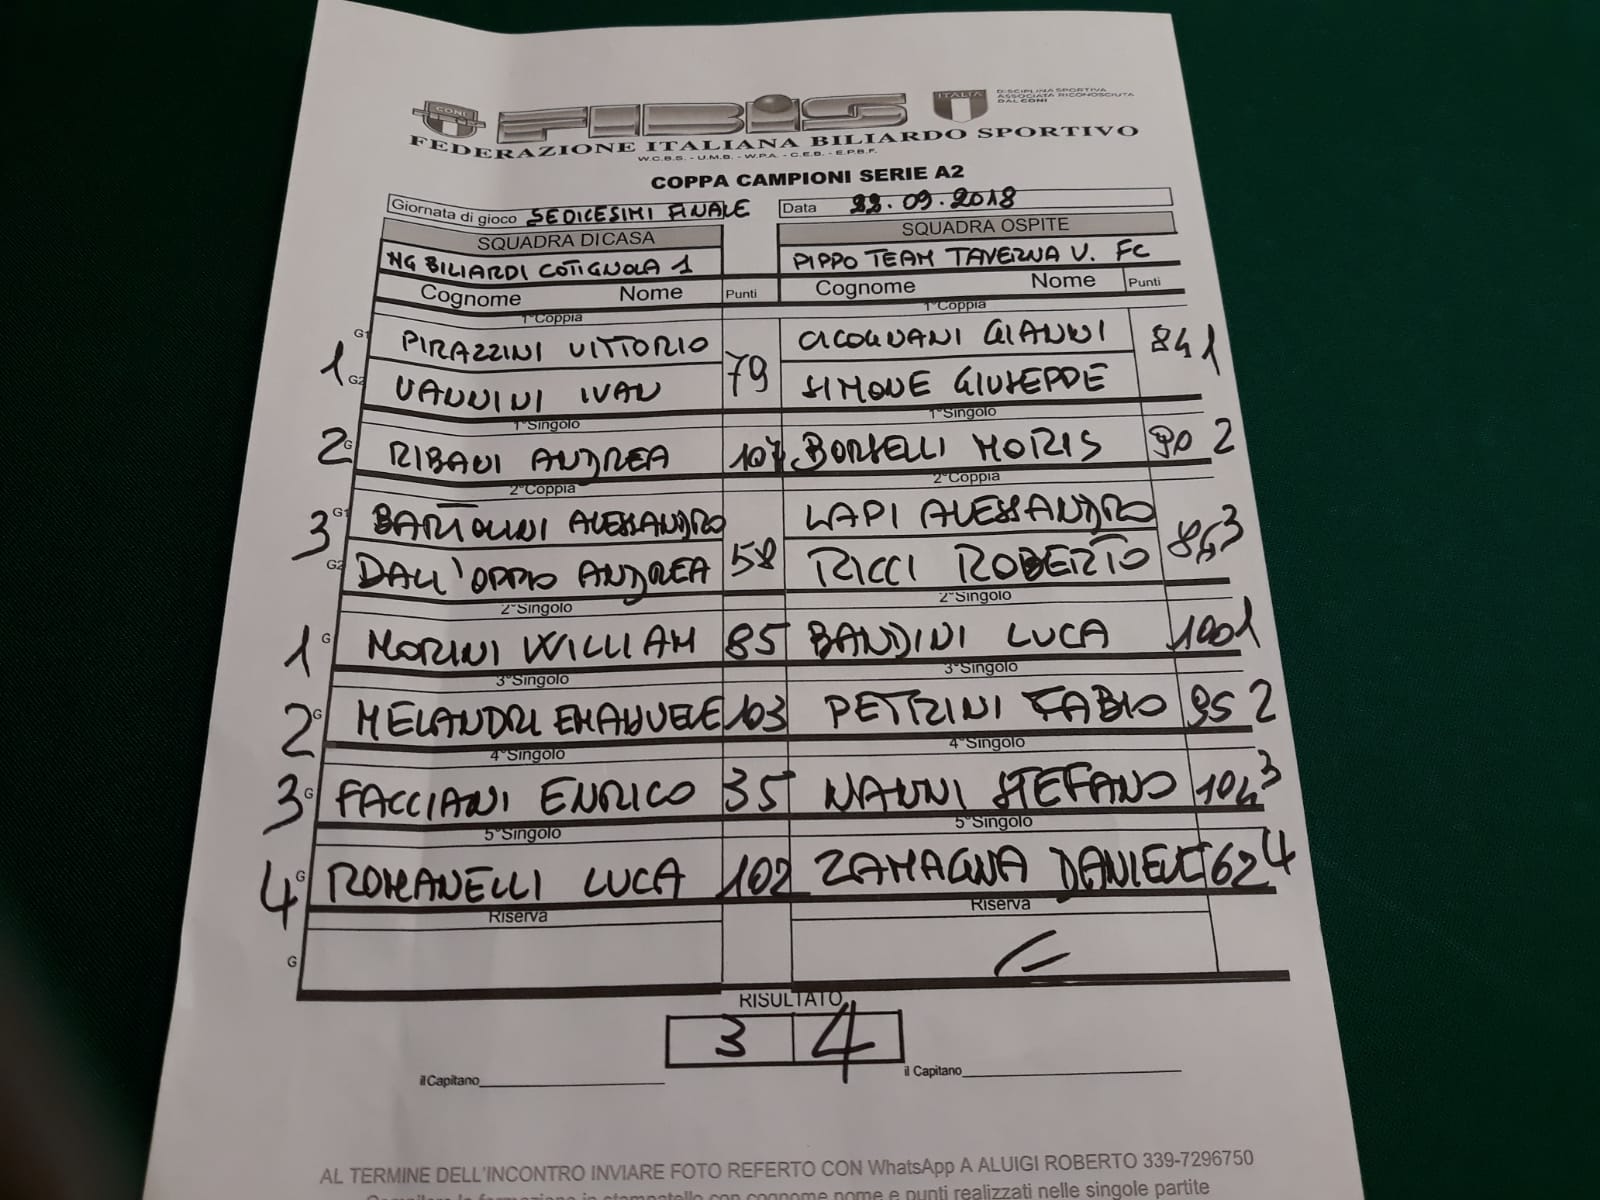 CONI FIBIS ITALIA DISCIPLINA SPORTIVA
ASSOCIATA RICONOSCIUTA
DAL CONI
FEDERAZIONE ITALIANA BILIARDO SPORTIVO
W.C.B.S. - U.M.B. - W.P.A. - C.E.B. - E.P.B.F.
COPPA CAMPIONI SERIE A2
Giornata di gioco SEDICESIMI FINALE Data 22.09.2018
SQUADRA DI CASA SQUADRA OSPITE
NG BILIARDI COTIGNOLA 1 PIPPO TEAM TAVERNA V. FC
Cognome Nome Punti Cognome Nome Punti
1°Coppia 1°Coppia
G1 PIRAZZINI VITTORIO CICOGNANI GIANNI
1 79 84 1
G2 VANNINI IVAN SIMONE GIUSEPPE
1°Singolo 1°Singolo
2 G RIBANI ANDREA 107 BORSELLI MORIS 90 2
2°Coppia 2°Coppia
G1 BARTOLINI ALESSANDRO LAPI ALESSANDRO
3 58 3
G2 DALL'OPPIO ANDREA RICCI ROBERTO
2°Singolo 2°Singolo
1 G MORINI WILLIAM 85 BANDINI LUCA 100 1
3°Singolo 3°Singolo
2 G MELANDRI EMANUELE 103 PETRINI FABIO 95 2
4°Singolo 4°Singolo
3 G FACCIANI ENRICO 35 NANNI STEFANO 104 3
5°Singolo 5°Singolo
4 G ROMANELLI LUCA 102 ZAMAGNA DANIELE 62 4
Riserva Riserva
G
RISULTATO
3 4
il Capitano il Capitano
AL TERMINE DELL'INCONTRO INVIARE FOTO REFERTO CON WhatsApp A ALUIGI ROBERTO 339-7296750
Compilare la formazione in stampatello con cognome nome e punti realizzati nelle singole partite